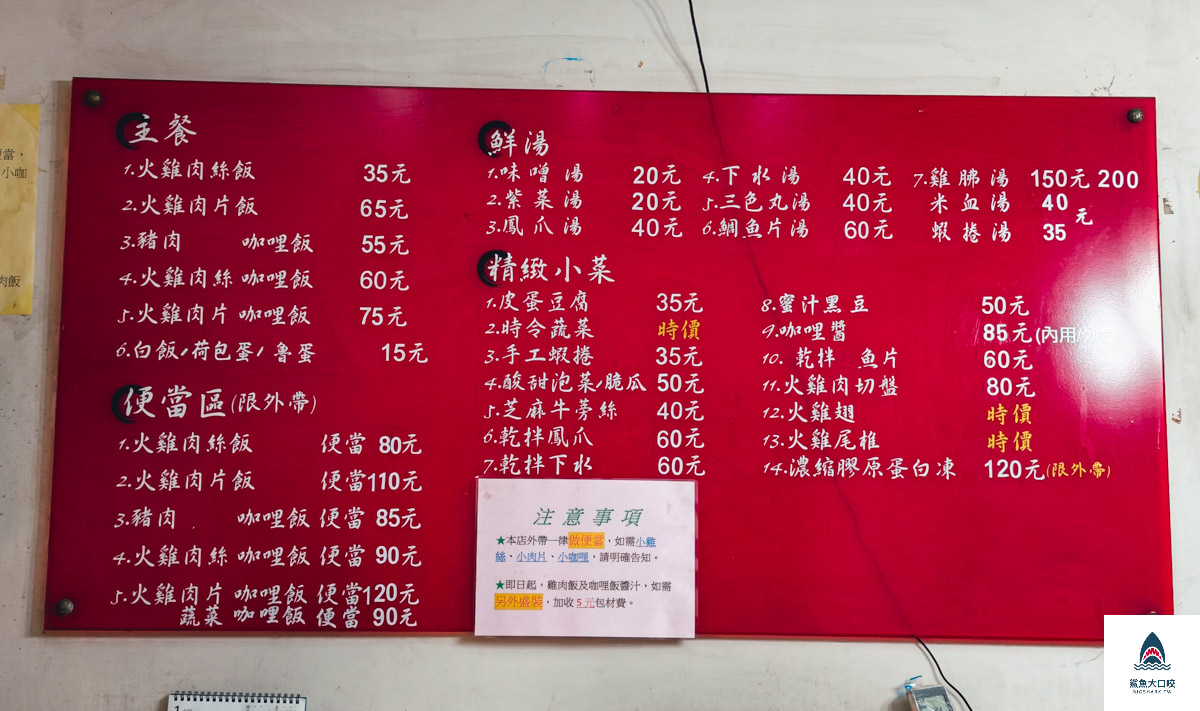 主餐
1.火雞肉絲飯 35元
2.火雞肉片飯 65元
3.豬肉 咖哩飯 55元
4.火雞肉絲 咖哩飯 60元
5.火雞肉片 咖哩飯 75元
6.白飯/荷包蛋/魯蛋 15元
便當區(限外帶)
1.火雞肉絲飯 便當 80元
2.火雞肉片飯 便當110元
3.豬肉 咖哩飯 便當 85元
4.火雞肉絲 咖哩飯 便當 90元
5.火雞肉片 咖哩飯 便當120元
蔬菜 咖哩飯 便當 90元
鮮湯
1.味噌湯 20元
2.紫菜湯 20元
3.鳳爪湯 40元
4.下水湯 40元
5.三色丸湯 40元
6.鯛魚片湯 60元
7.雞胇湯 150元 200
米血湯 40元
蝦捲湯 35
精緻小菜
1.皮蛋豆腐 35元
2.時令蔬菜 時價
3.手工蝦捲 35元
4.酸甜泡菜/脆瓜 50元
5.芝麻牛蒡絲 40元
6.乾拌鳳爪 60元
7.乾拌下水 60元
8.蜜汁黑豆 50元
9.咖哩醬 85元(內用/外
10.乾拌 魚片 60元
11.火雞肉切盤 80元
12.火雞翅 時價
13.火雞尾椎 時價
14.濃縮膠原蛋白凍 120元(限外帶)
注意事項
★本店外帶一律做便當，如需小雞
絲、小肉片、小咖哩，請明確告知。
★即日起，雞肉飯及咖哩飯醬汁，如需
另外盛裝，加收5元包材費。
當，
小咖
肉飯
1
鯊魚大口咬
BIGSHARK.TW